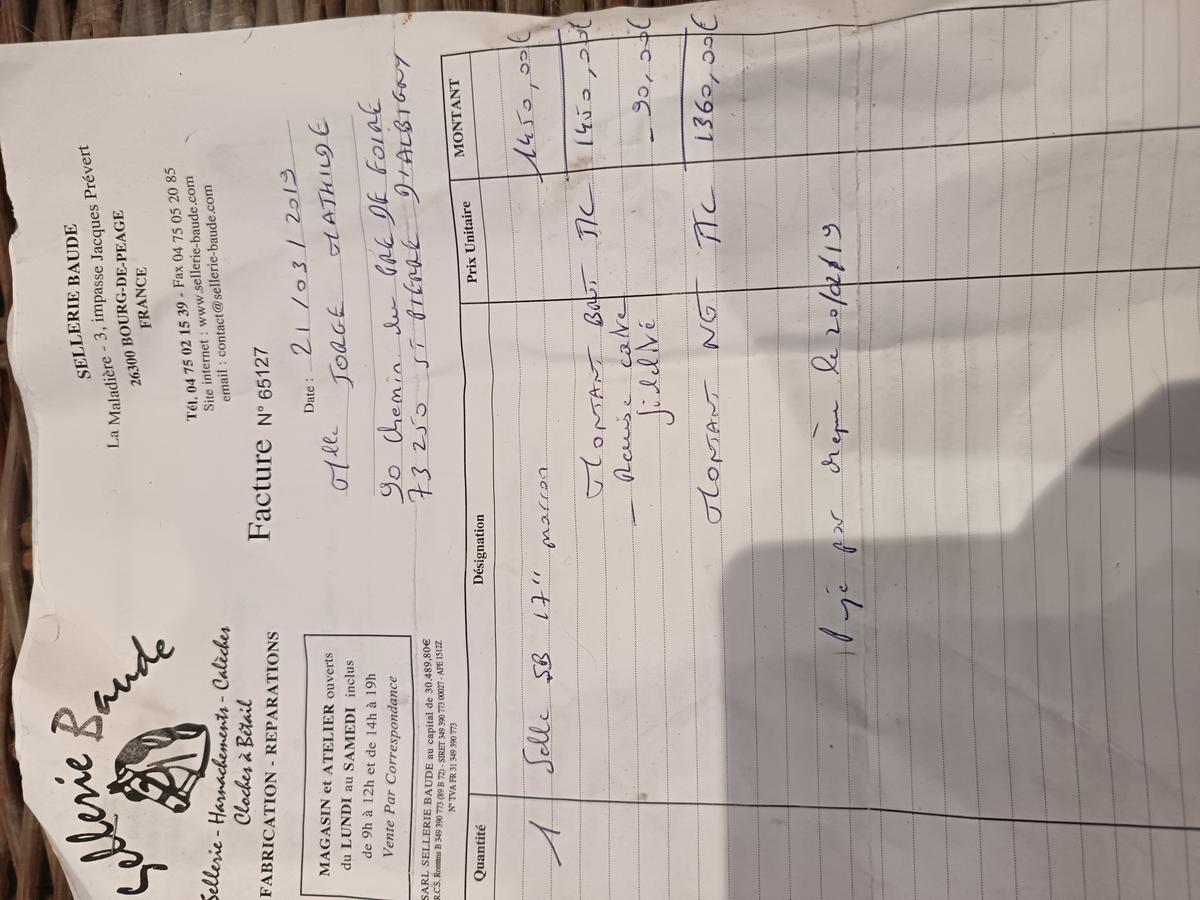 Sellerie Baude
Sellerie - Harnachements - Calèches
Cloches à Bétail
FABRICATION - REPARATIONS
MAGASIN et ATELIER ouverts
du LUNDI au SAMEDI inclus
de 9h à 12h et de 14h à 19h
Vente Par Correspondance
SARL SELLERIE BAUDE au capital de 30.489,80€
R.C.S. Romans B 349 390 773 (89 B 72) - SIRET 349 390 773 00027 - APE 1512Z
N° TVA FR 31 349 390 773
SELLERIE BAUDE
La Maladière - 3, impasse Jacques Prévert
26300 BOURG-DE-PEAGE
FRANCE
Tél. 04 75 02 15 39 - Fax 04 75 05 20 85
Site internet : www.sellerie-baude.com
email : contact@sellerie-baude.com
Facture N° 65127
Date : 21/03/2019
Mlle JORGE MATHILDE
90 Chemin du PRE DE FOIRE
73 250 ST PIERRE D'ALBIGNY
Quantité Désignation Prix Unitaire MONTANT
1 Selle SB 17" marron 1450,00€
MONTANT BRUT TTC 1450,00€
- Remise carte - 90,00€
fidélité
MONTANT NET TTC 1360,00€
Payé par chèque le 20/02/19